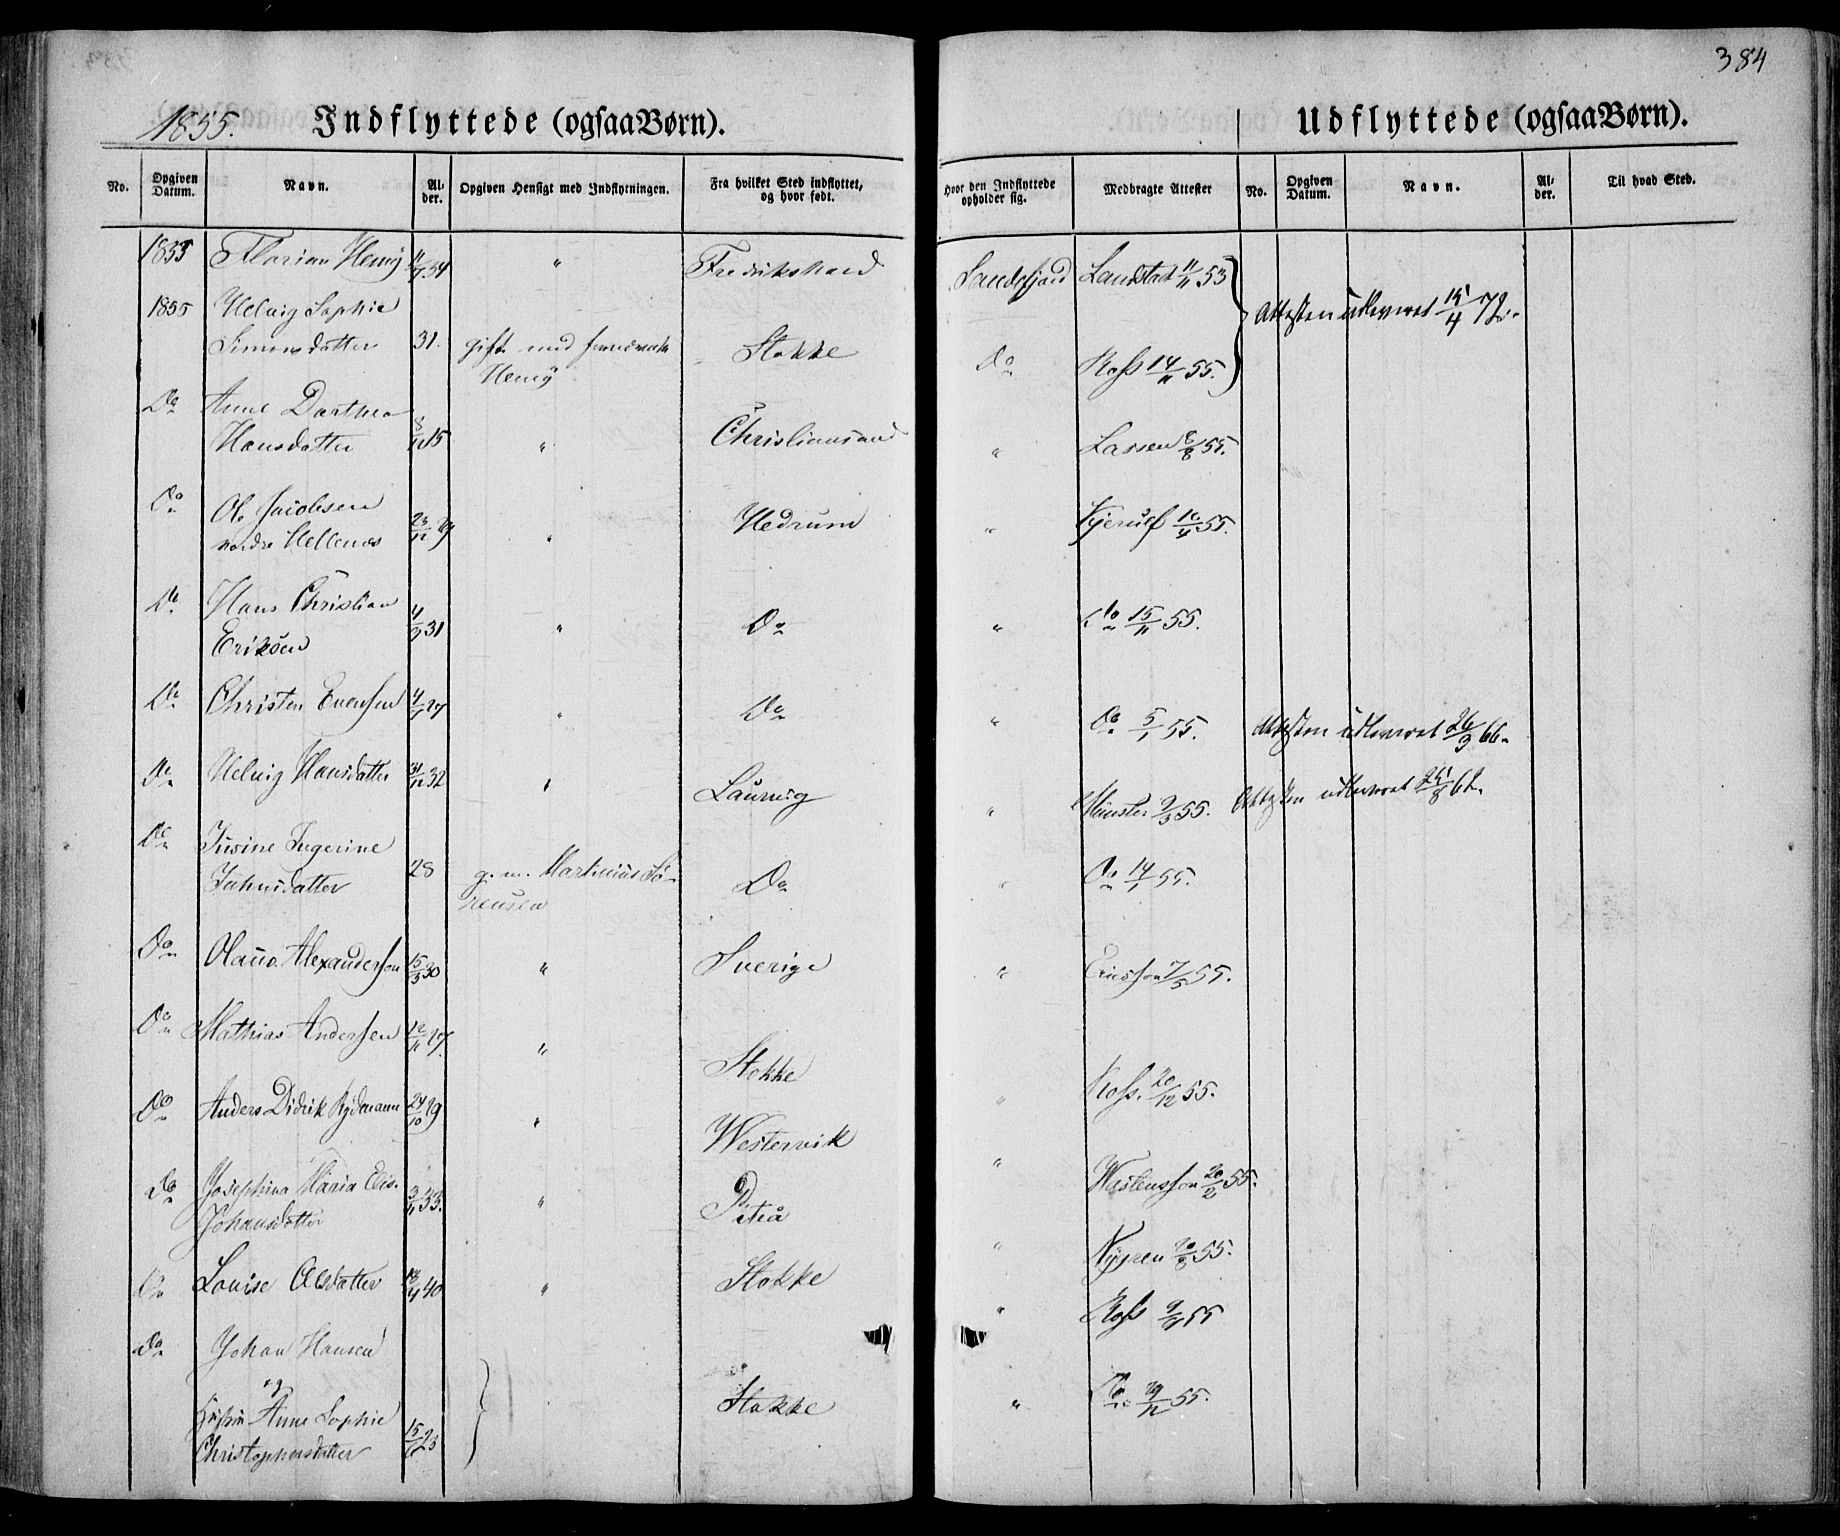 384
1855. Indflyttede (ogsaa Børn).
Udflyttede (ogsaa Børn).
No. Opgiven Datum. Navn. Al-der. Opgiven Hensigt med Indflytningen. Fra hvilket Sted indflyttet, og hvor født. Hvor den Indflyttede opholder sig. Medbragte Attester No. Opgiven Datum. Navn. Al-der. Til hvad Sted.
1855 Florian Henij 34 " Fredrikshald Sandefjord Landstad 11/11 53
Attesten udleveret 15/4 72.
1855 Helvig Sophie
Simonsdatter 31. gift med Henij Stokke Do Ross 14/11 55.
Do Anne Dorthea
Hansdatter 15 " Christiansand " Lassen 55.
Do Ol. Jacobsen
nordre Hellenæs 23/12 29 " Hedrum " Kjerulf 55.
Do Hans Christian
Eriksen 31 " Do " Do 15/11 55.
Do Christen Evensen 27 " Do " Do 5/1 55. Attesten udleveret 26/9 66.
Do Helvig Hansdatter 31/12 32 " Laurvig " Münster 9/3 55. Attesten udleveret 25/8 62.
Do Jusine Ingerine
Jahnsdatter 28 g. m. Martinius Sø-
rensen Do " Do 14/1 55.
Do Olaus Alexandersen 15/3 30 " Sverige " Ericsson 7/5 55.
Do Mathias Andersen 27. " Stokke " Ross. 20/12 55.
Do Anders Didrik Rydmann 24/10 29 " Westervik " 20/2 55.
Do Josephina Maria Elis.
Johansdatter 33. " Piteå " 55.
Do Louise Olsdatter 40 " Stokke " Ross 55
Do Johan Hansen
og
Hustru Anne Sophie
Christophersdatter 23 Stokke " Do 55.